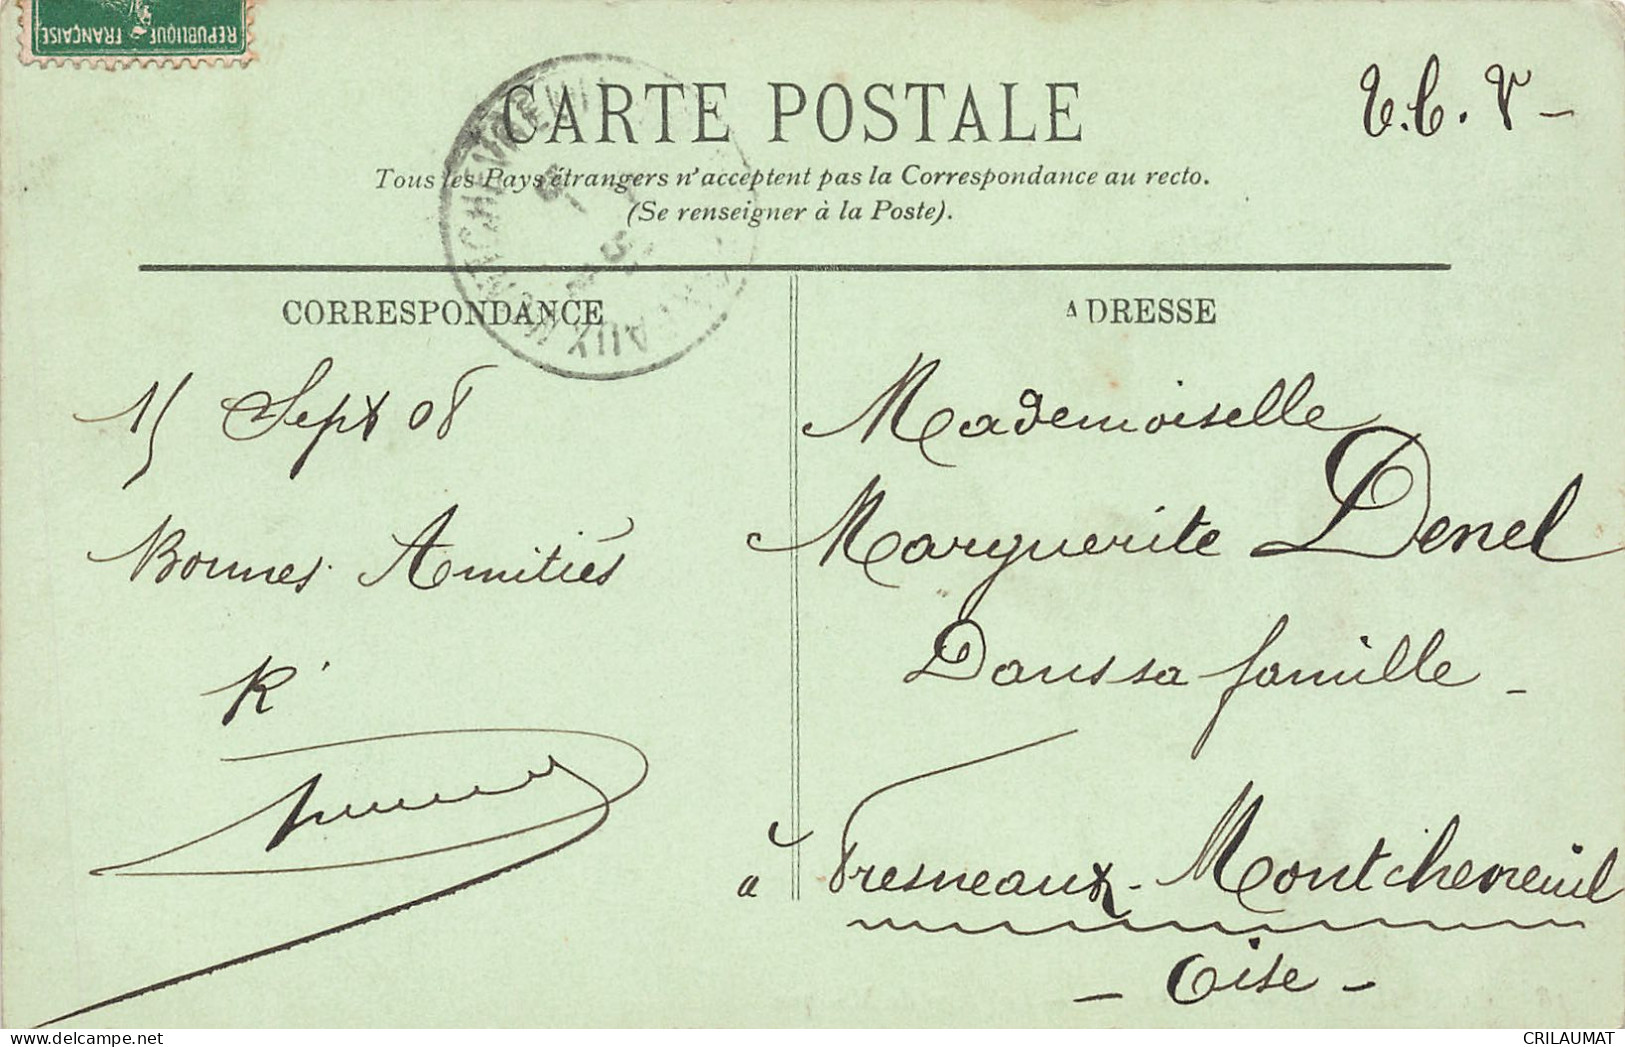 REPUBLIQUE FRANÇAISE
CARTE POSTALE
T.C.V-
Tous les Pays étrangers n'acceptent pas la Correspondance au recto.
(Se renseigner à la Poste).
CORRESPONDANCE
15 Sept 08
Bonnes Amitiés
R
ADRESSE
Mademoiselle
Marguerite Denel
Dans sa famille -
à Fresneaux-Montchevreuil
- Oise -
delcampe.net
CRILAUMAT